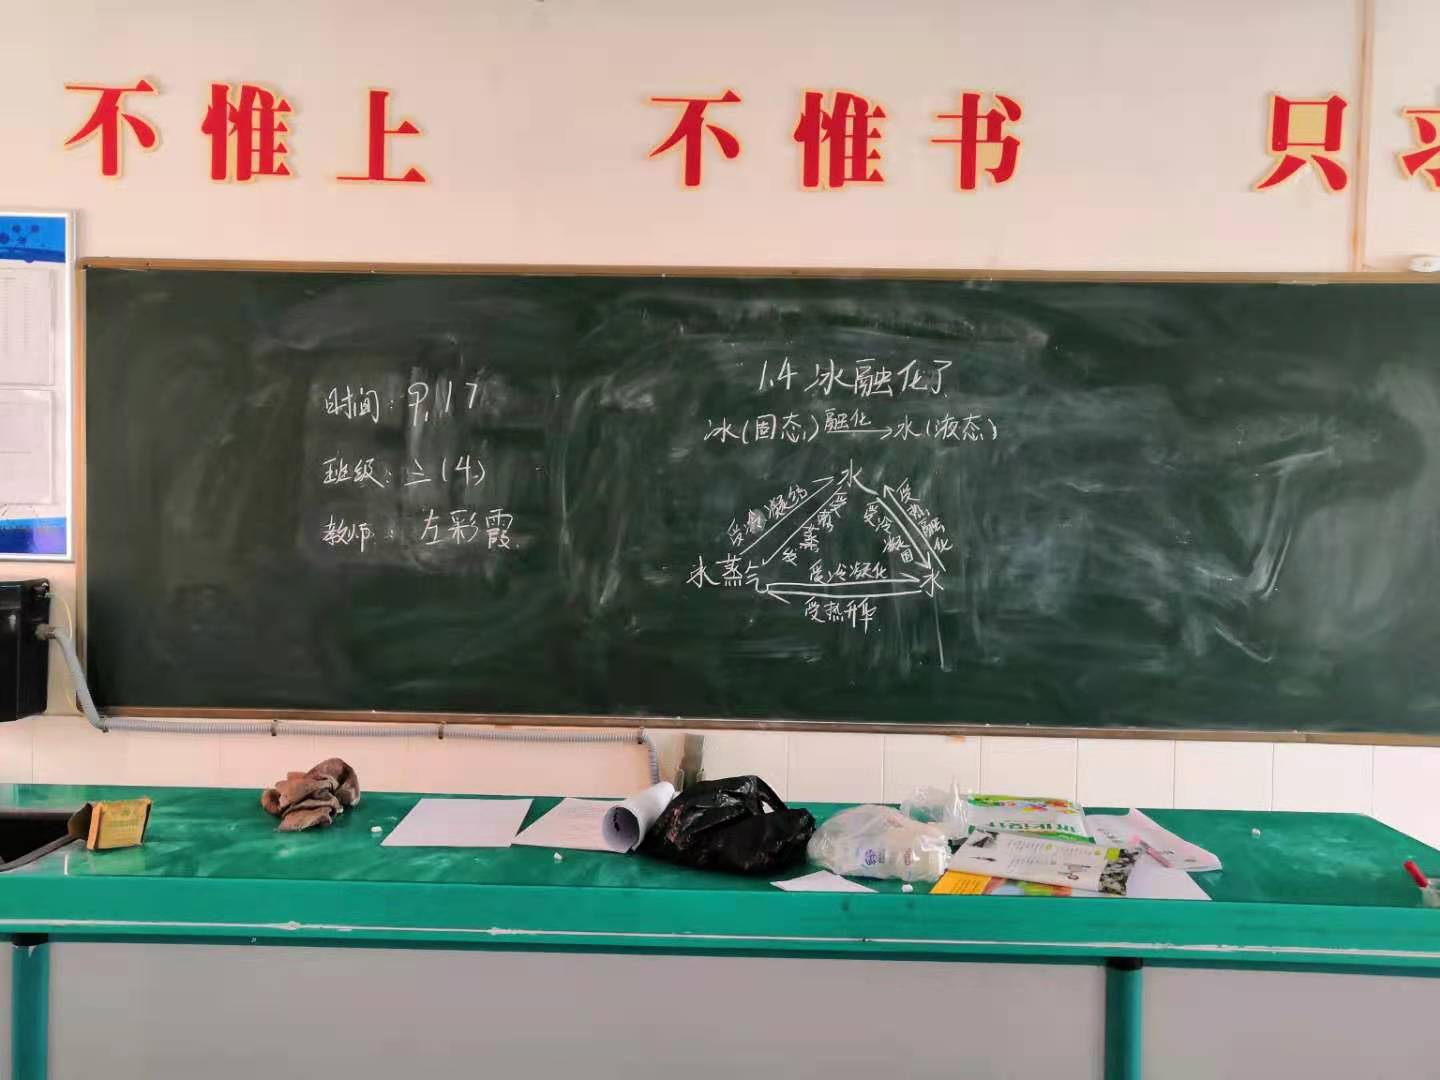 不惟上 不惟书 只求
时间：9.17
班级：三（4）
教师：左彩霞
1.4 冰融化了
冰（固态）融化 水（液态）
水
受冷凝结
受冷凝固
受热融化
水蒸气
受冷凝华
受热升华